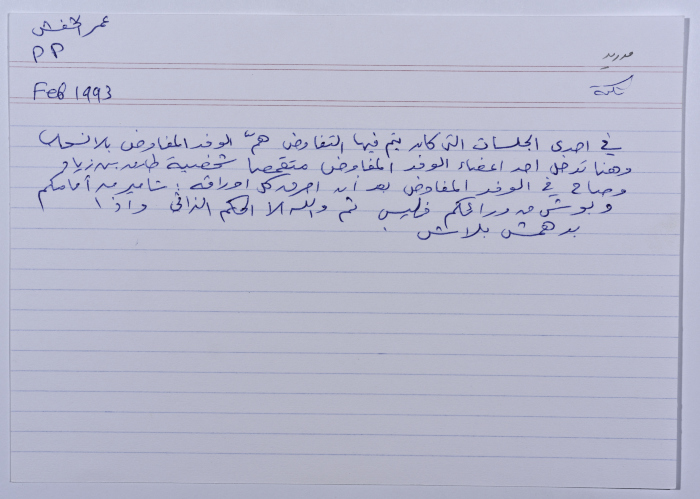 عمر الخفش
PP
مدريد
Feb 1993
نكتة
في احدى الجلسات التي كان يتم فيها التفاوض همّ الوفد المفاوض بالانسحاب
وهنا تدخل احد اعضاء الوفد المفاوض متقمصا شخصية طارق بن زياد
وصاح في الوفد المفاوض بعد أن احرق كل اوراقه: شامير من أمامكم
وبوش من ورائكم فليس ثم والله الا الحكم الذاتي واذا
بدهمش بلاش